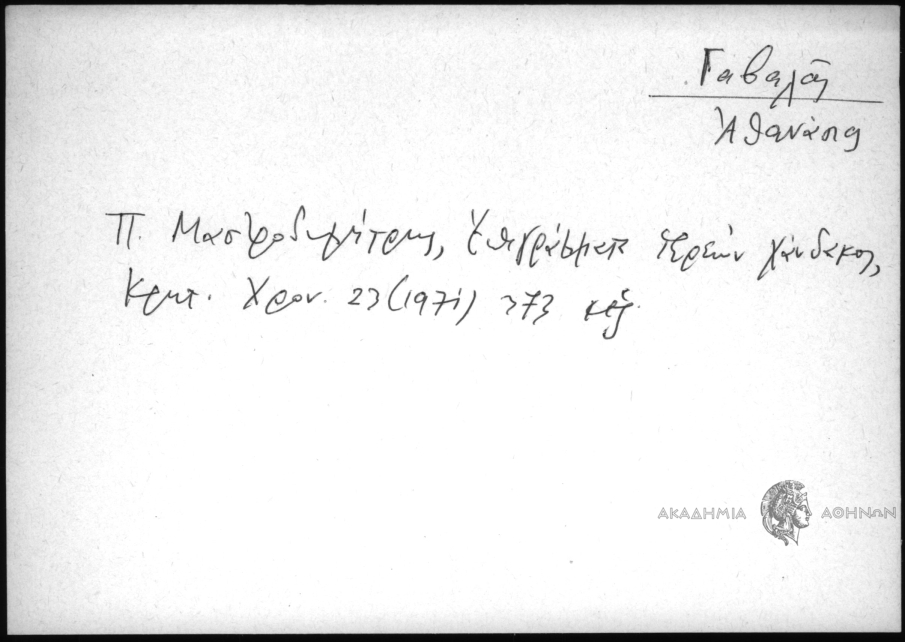 Γαβαλᾶς
Ἀθανάσης
Π. Μαστροδημήτρης, Ἐπιγράμματα Ἱερέων Χάνδακος,
Κρητ. Χρον. 23 (1971) 373 κἑξ.
ΑΚΑΔΗΜΙΑ ΑΘΗΝΩΝ